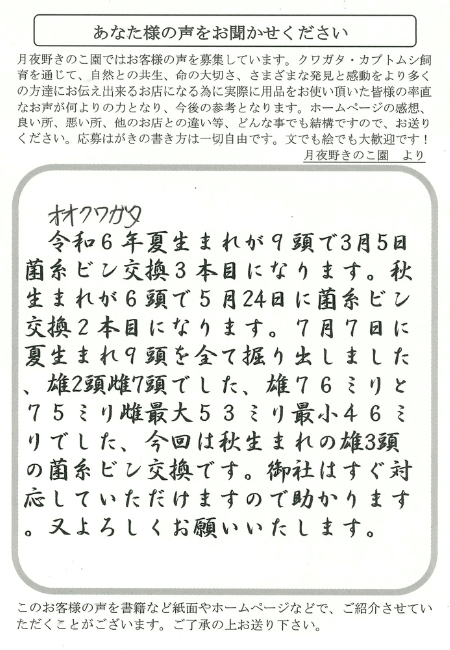 あなた様の声をお聞かせください
月夜野きのこ園ではお客様の声を募集しています。クワガタ・カブトムシ飼
育を通じて、自然との共生、命の大切さ、さまざまな発見と感動をより多く
の方達にお伝え出来るお店になる為に実際に用品をお使い頂いた皆様の率直
なお声が何よりの力となり、今後の参考となります。ホームページの感想、
良い所、悪い所、他のお店との違い等、どんな事でも結構ですので、お送り
ください。応募はがきの書き方は一切自由です。文でも絵でも大歓迎です！
月夜野きのこ園　より
オオクワガタ
令和６年夏生まれが９頭で3月5日
菌糸ビン交換３本目になります。秋
生まれが６頭で５月24日に菌糸ビン
交換２本目になります。７月７日に
夏生まれ９頭を全て掘り出しました
、雄2頭雌7頭でした、雄７６ミリと
７５ミリ雌最大５３ミリ最小４６ミ
リでした、今回は秋生まれの雄3頭
の菌糸ビン交換です。御社はすぐ対
応していただけますので助かります
。又よろしくお願いいたします。
このお客様の声を書籍など紙面やホームページなどで、ご紹介させてい
ただくことがございます。ご了承の上お送り下さい。